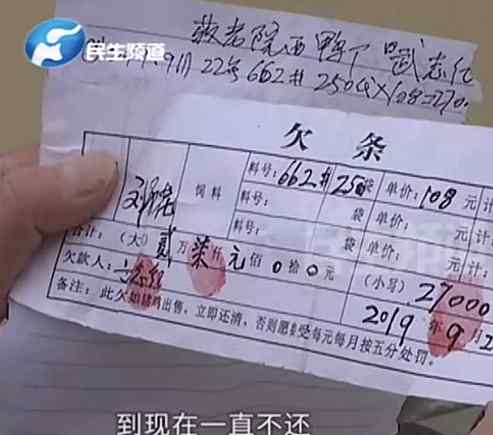 民生频道
敬老院西鸭厂 武志红
9月22号 662# 250代×108=270
欠条
饲料 料号: 662# 250袋 单价: 108元 计
料号: 袋 单价: 元 计
料号: 袋 单价: 元 计
合计: (大) 贰万柒仟元佰0拾0元 (小写) 27000
欠款人: 2019年9月2
备注: 此欠如猪鸡出售,立即还清,否则愿受每元每月按五分处罚。
到现在一直不还